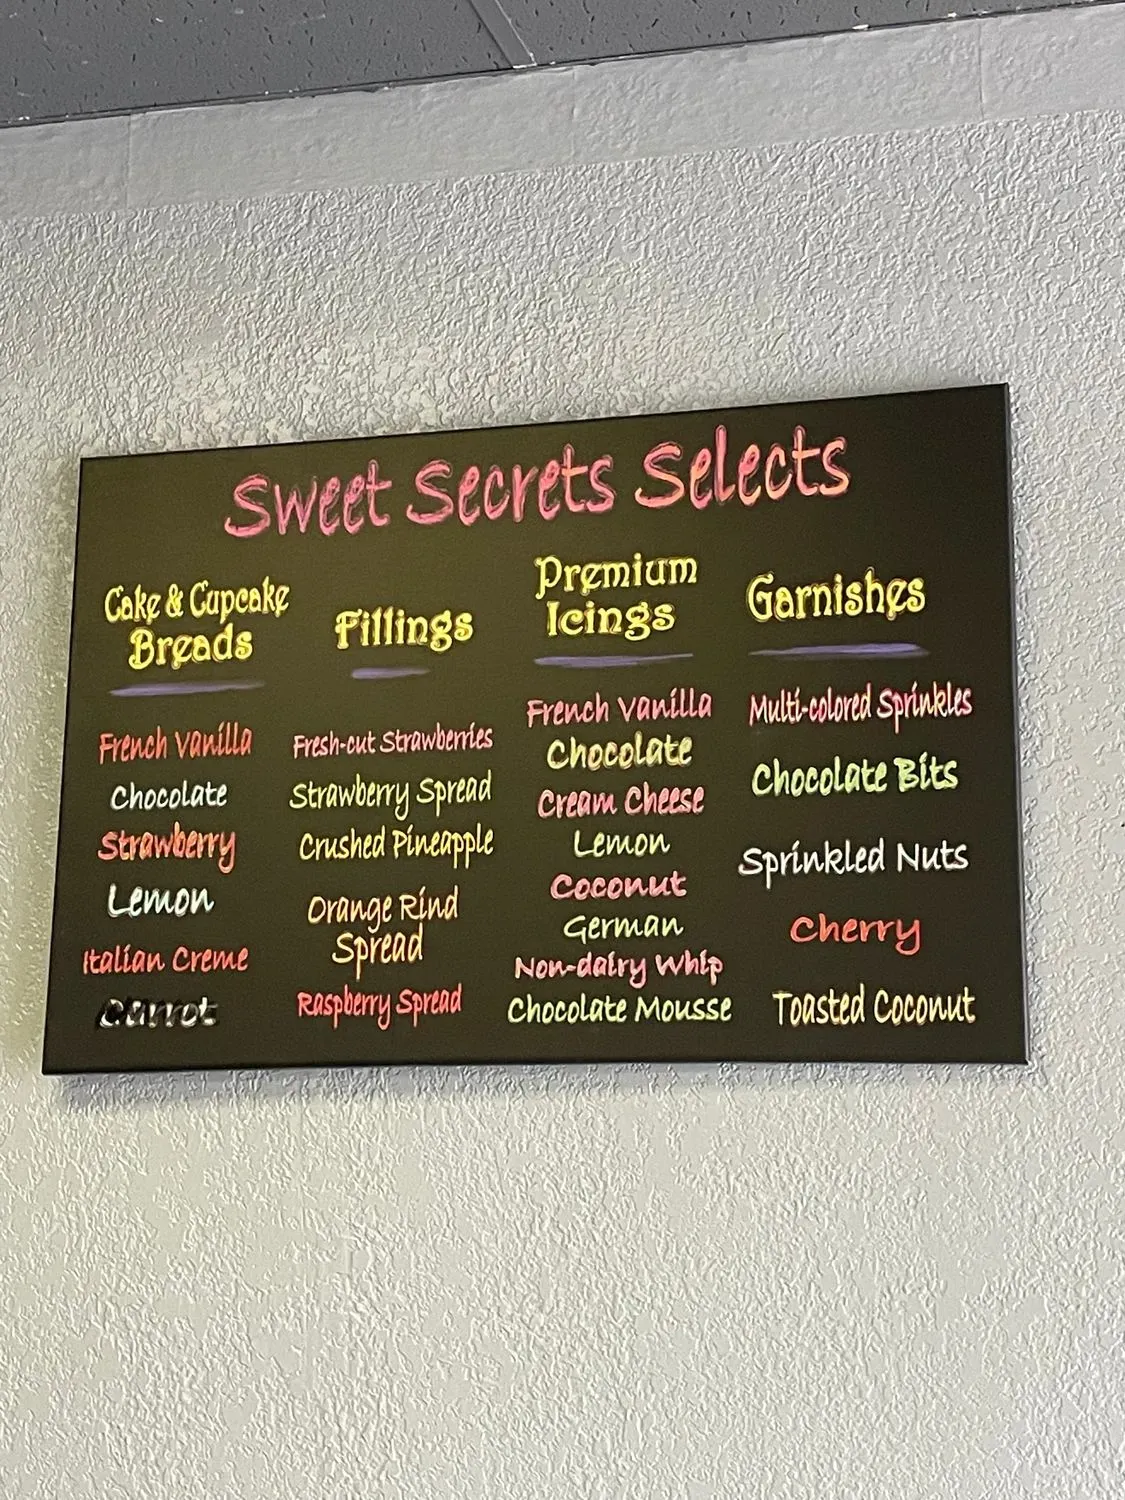 Sweet Secrets Selects
Cake & Cupcake
Breads
French Vanilla
Chocolate
Strawberry
Lemon
Italian Creme
Carrot
Fillings
Fresh-cut Strawberries
Strawberry Spread
Crushed Pineapple
Orange Rind
Spread
Raspberry Spread
Premium
Icings
French Vanilla
Chocolate
Cream Cheese
Lemon
Coconut
German
Non-dairy Whip
Chocolate Mousse
Garnishes
Multi-colored Sprinkles
Chocolate Bits
Sprinkled Nuts
Cherry
Toasted Coconut